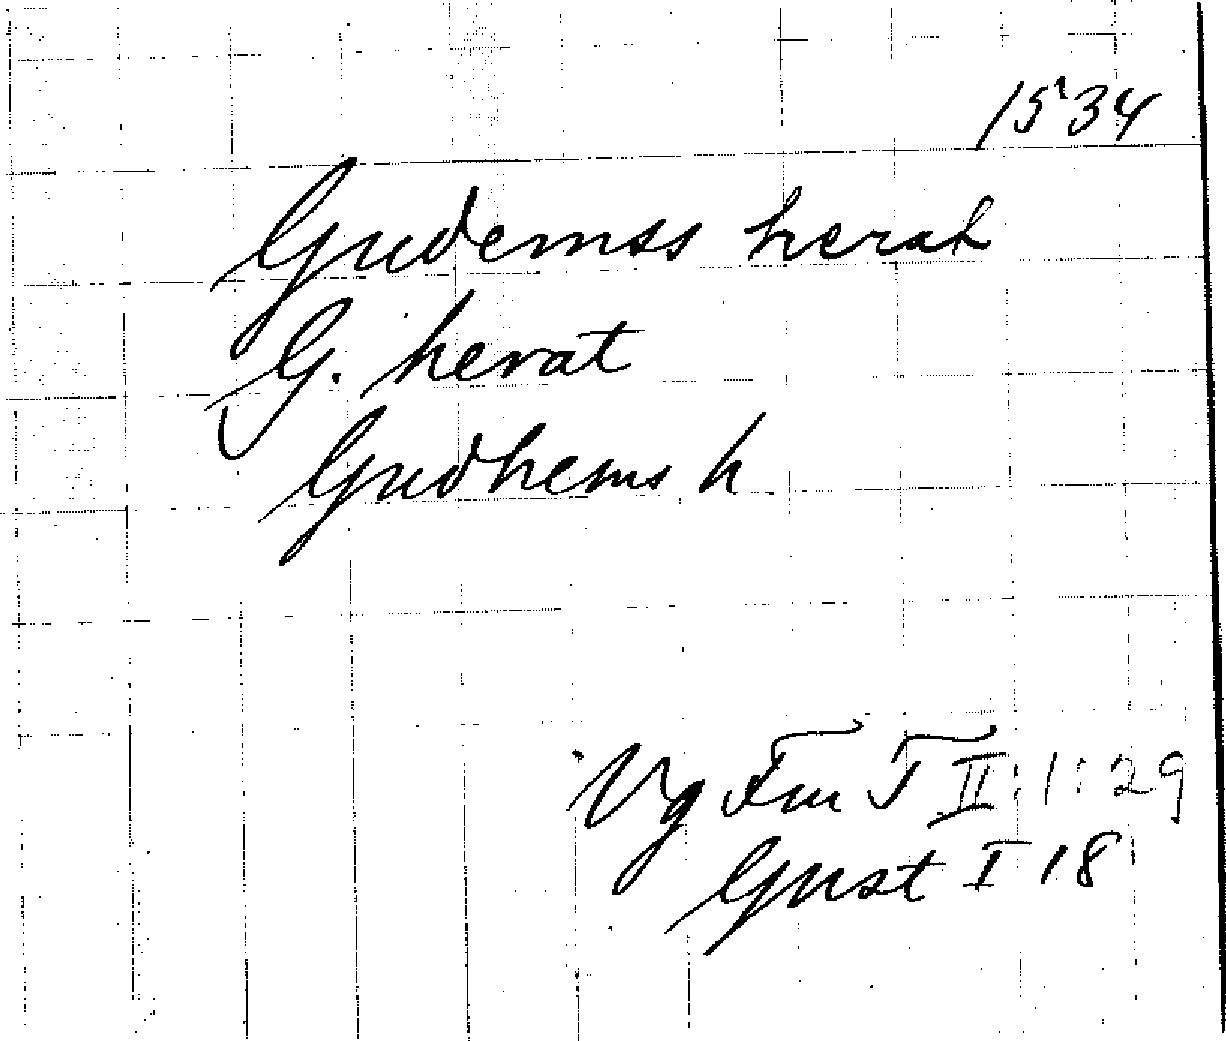 1534
Gudemss herat
G. herat
Gudhems h
Vg Fm T II:1:29
Gust I 18